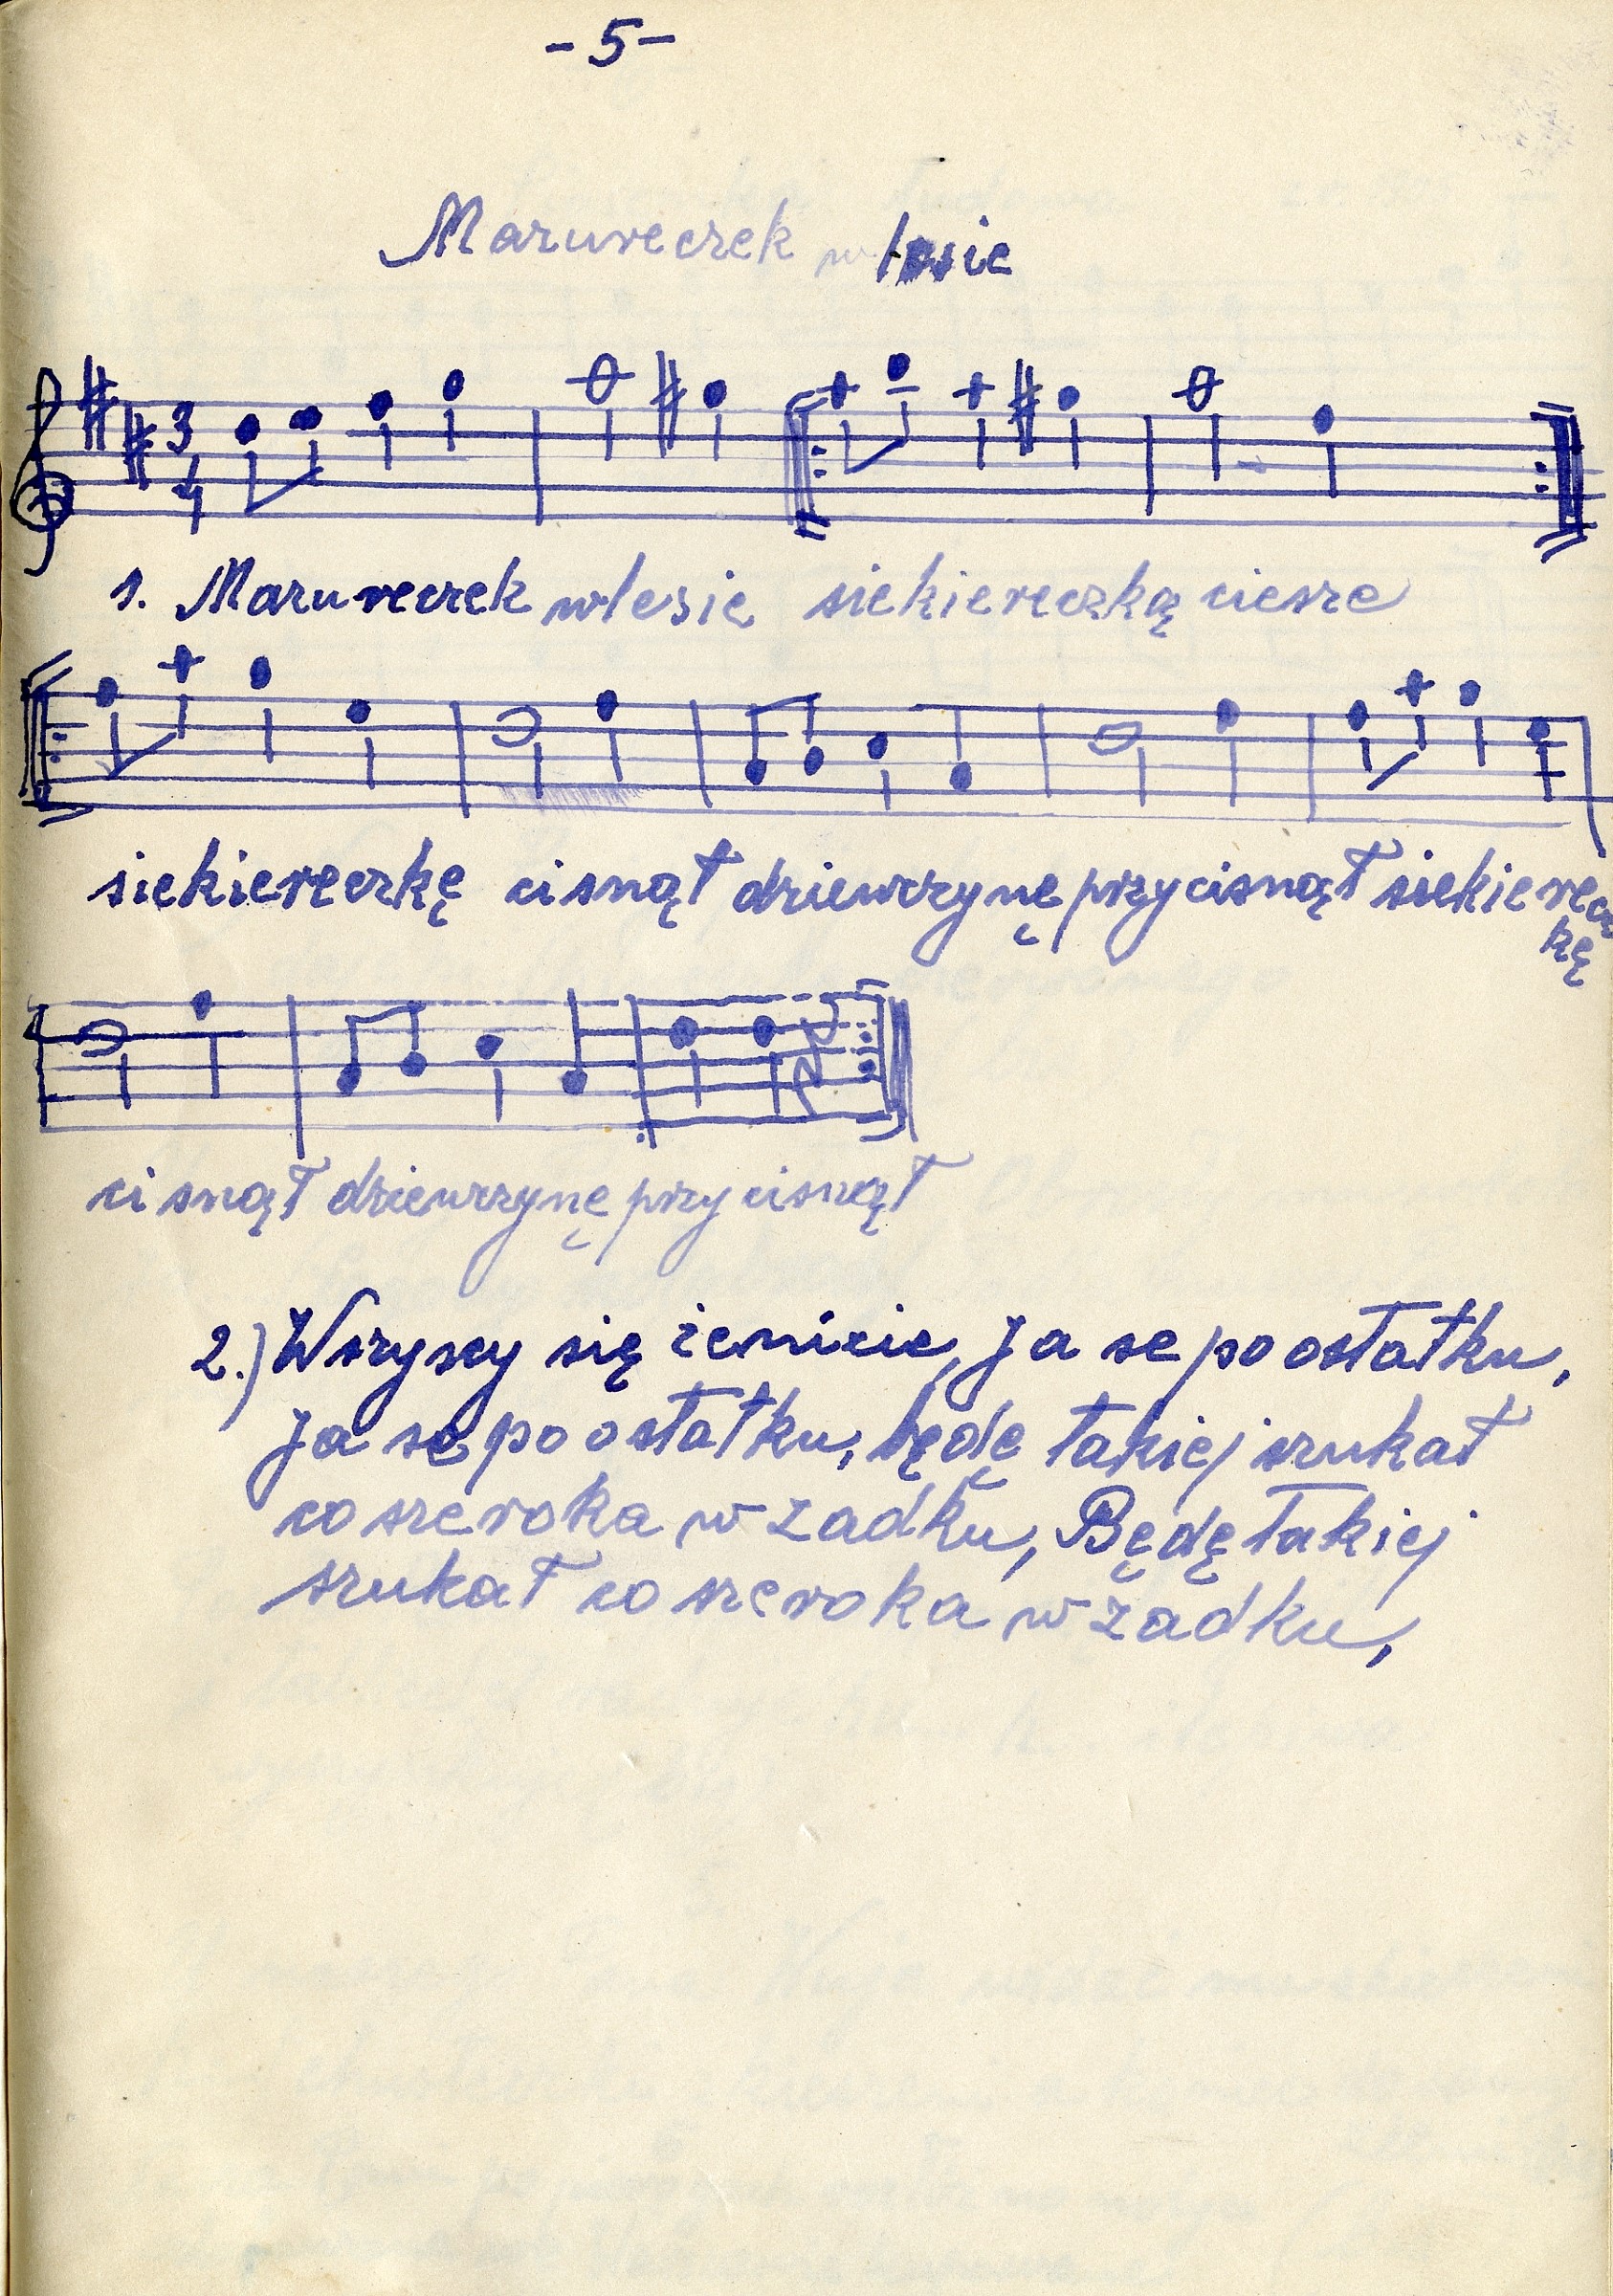 - 5 -
Mazureczek w lesie
3
4
1. Mazureczek w lesie siekiereczką ciesze
siekiereczkę cisnął dziewczynę przycisnął siekierecz
kę
cisnął dziewczynę przycisnął
2.) Wszyscy się żenicie, ja se po ostatku,
ja se po ostatku, będę takiej szukał
co szeroka w zadku, Będę takiej
szukał co szeroka w zadku,